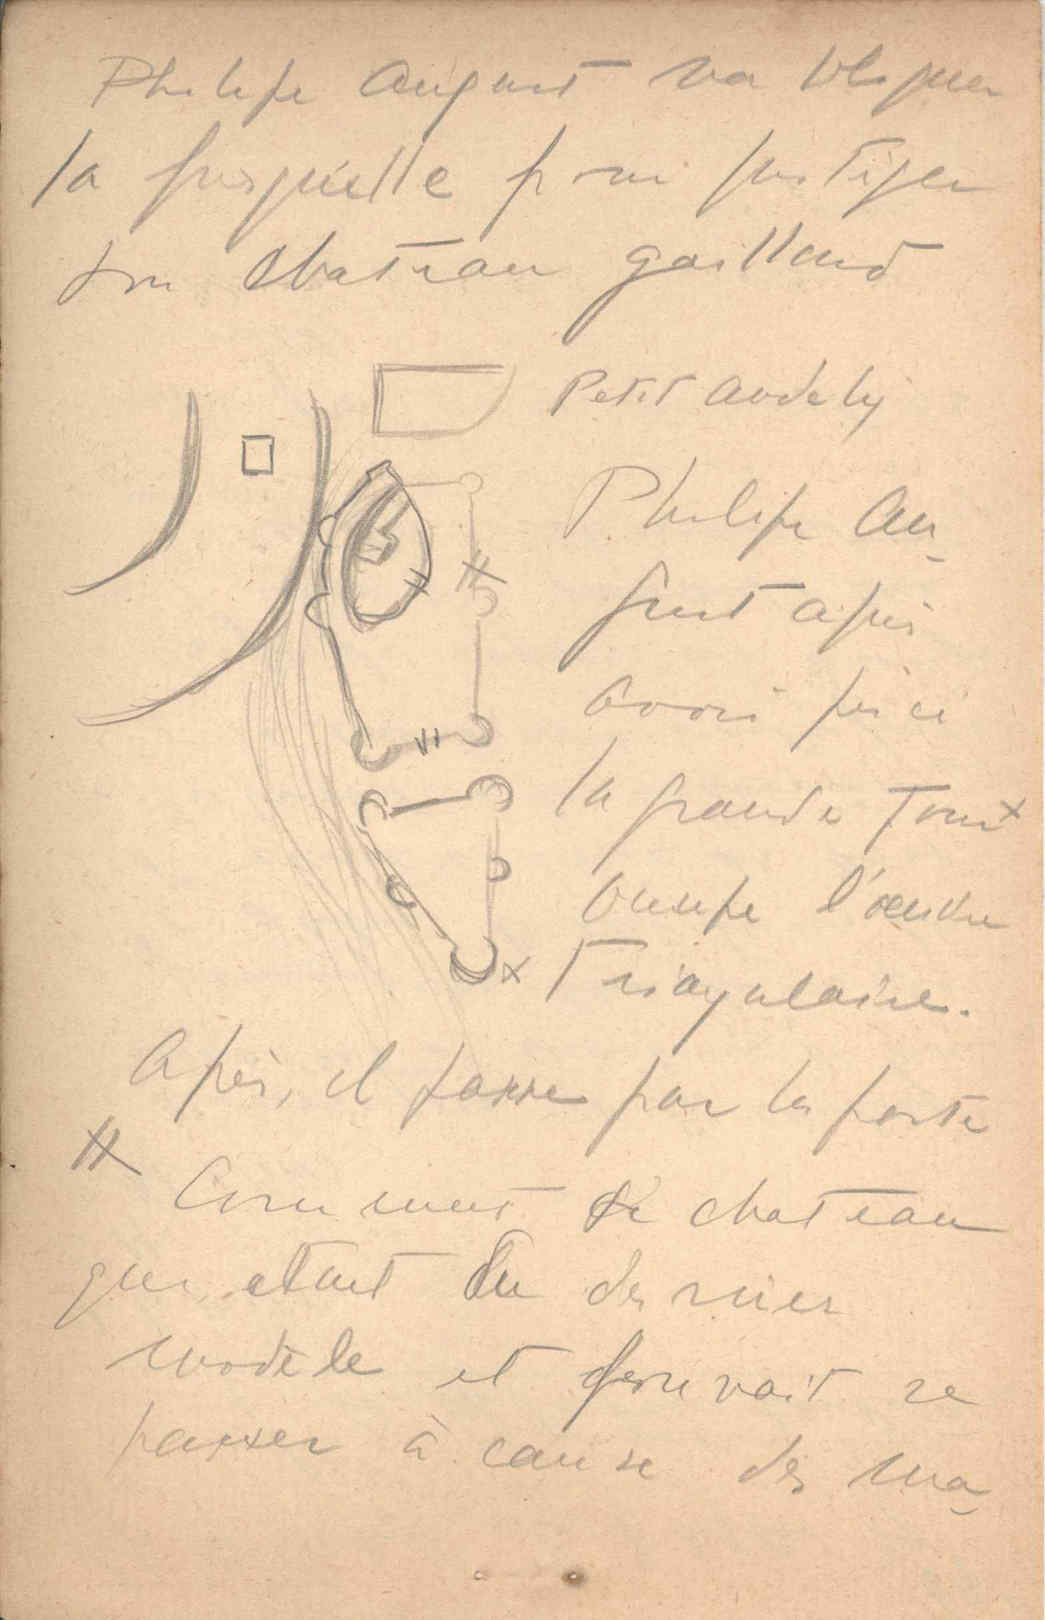 Philipe August va bloquer
la presqu'ille pour fustiger
son chateau gaillard
Petit Andely
Philipe Au-
gust après
avoir pris ici
la grande Tour x
occupe l'œuvre
Triagulaire.
Après, il passe par la porte
Comment ce chateau
qui etait du dernier
modèle et pouvait se
passer à cause des ma-